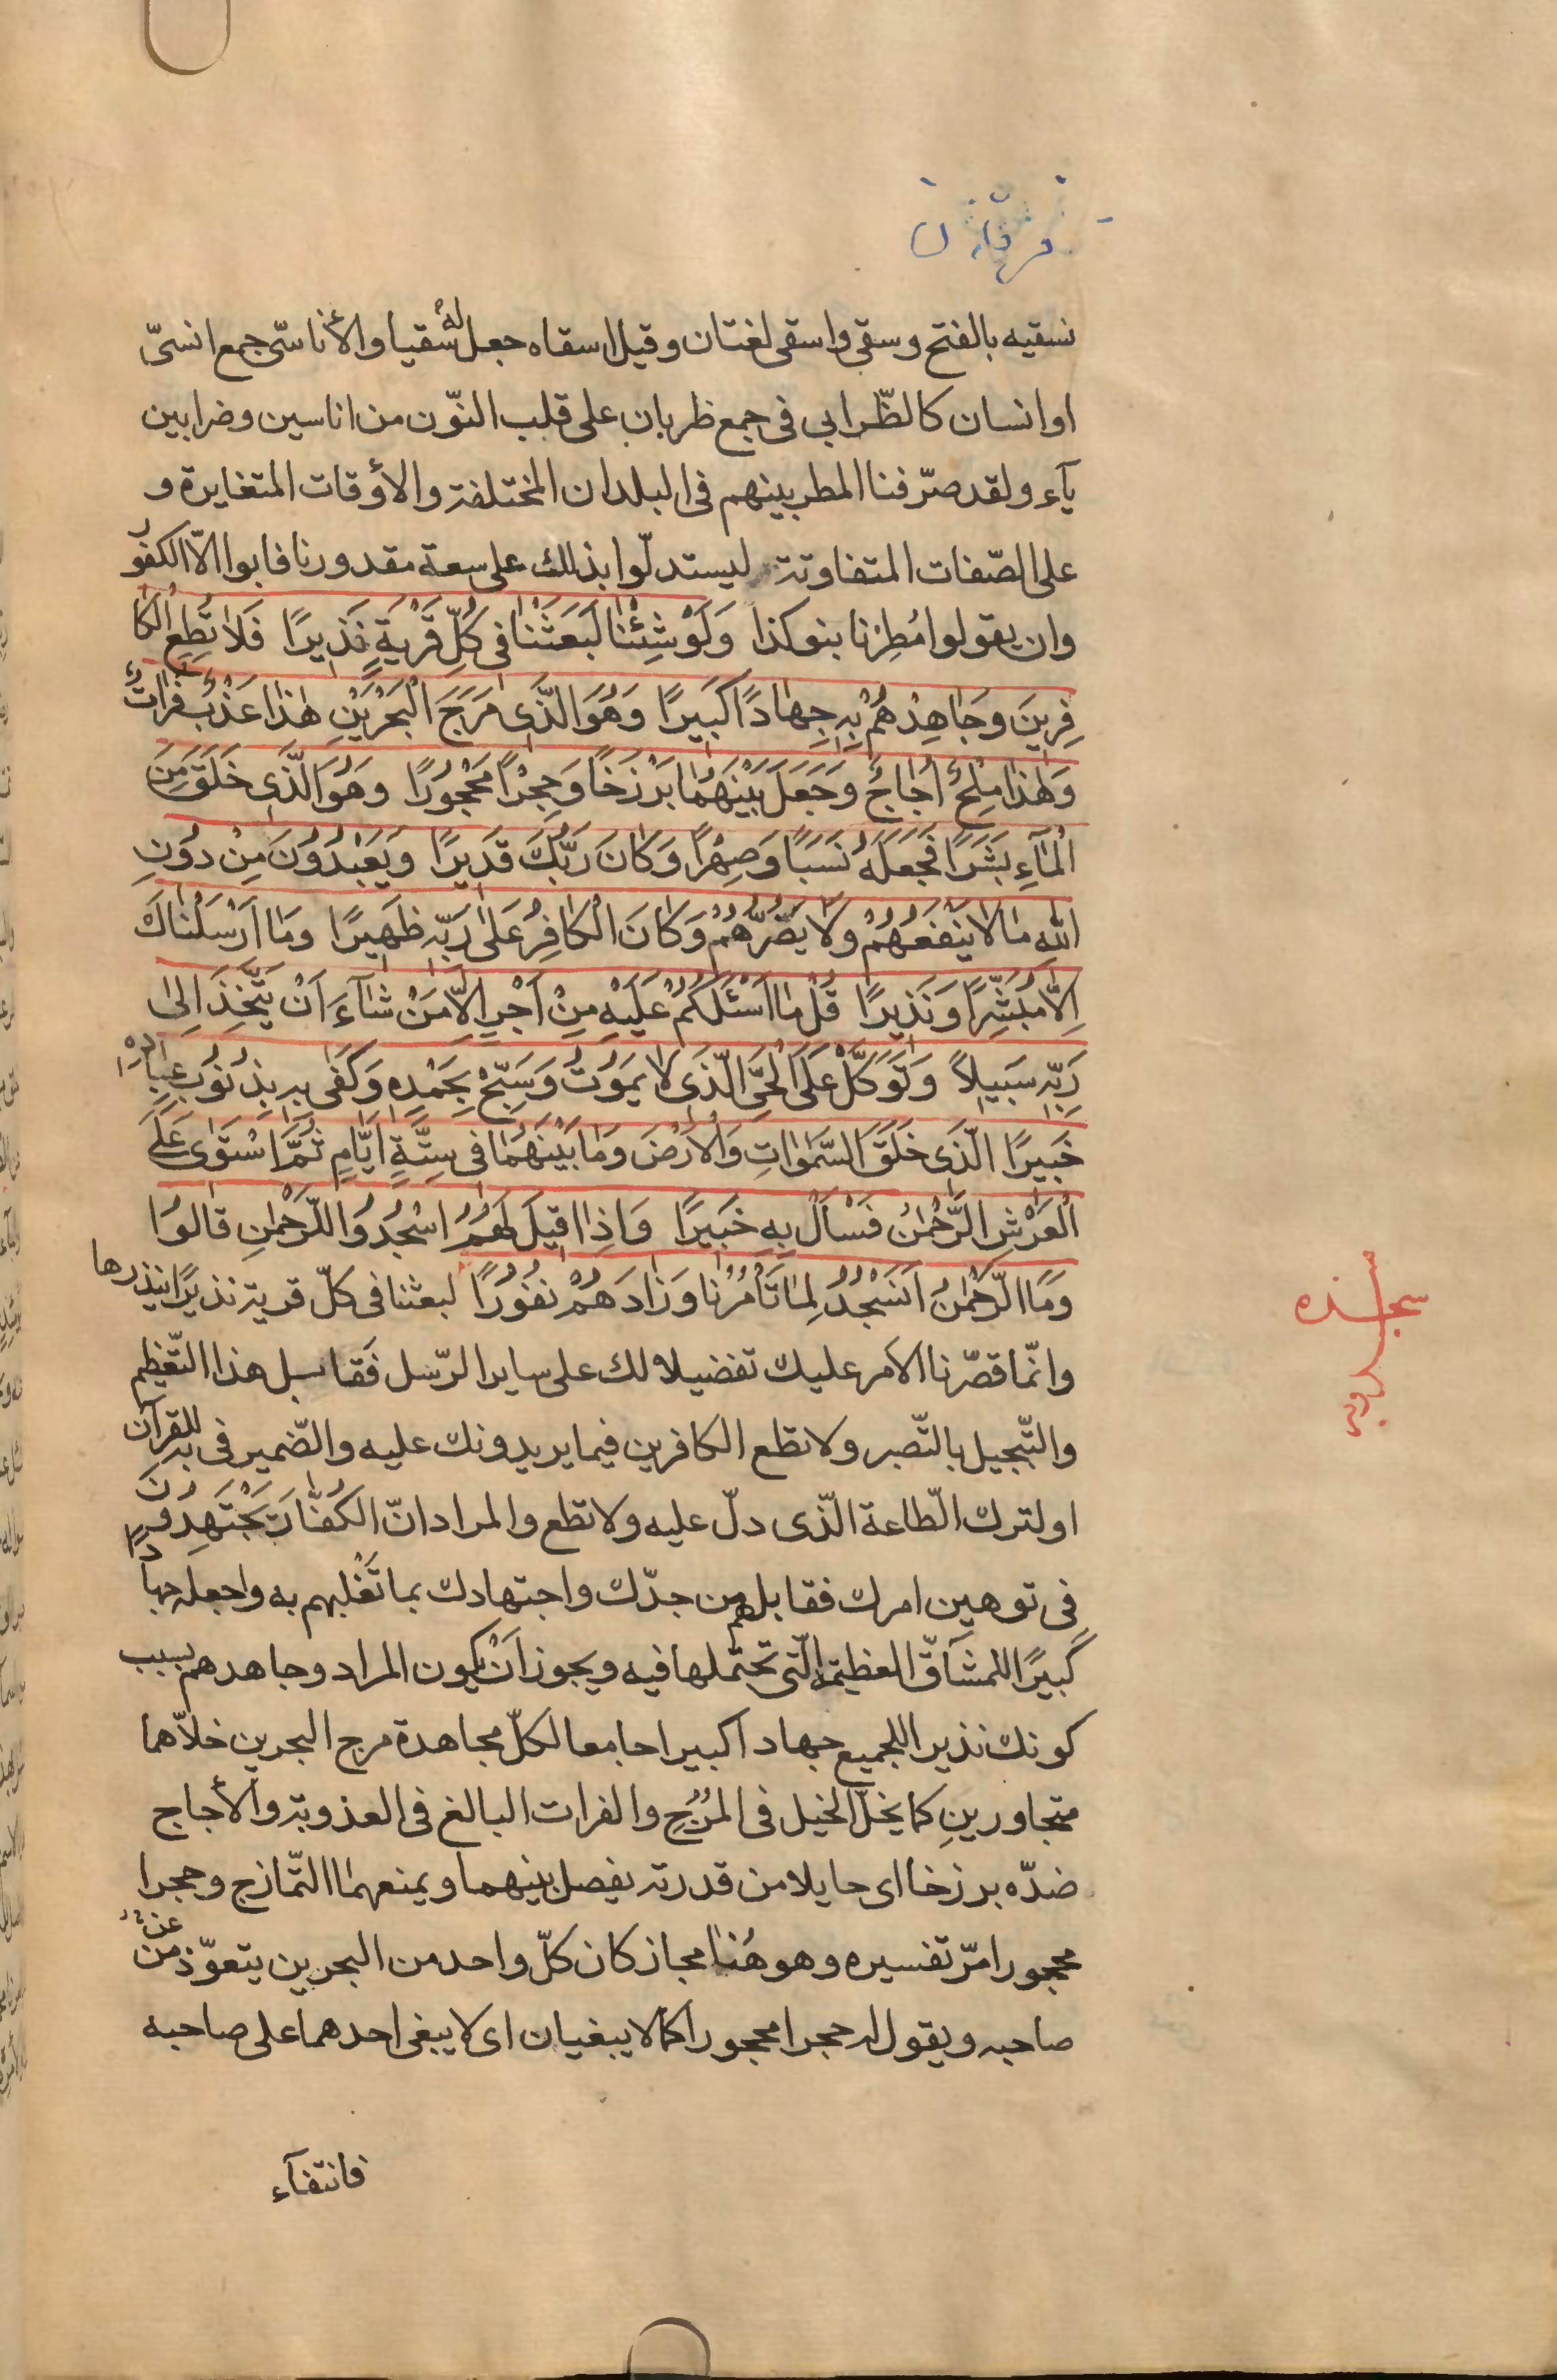 فرقان
نسقيه بالفتح وسقى واسقى لغتان وقيل اسقاه جعل له سقيا والأناسىّ جمع انسىّ
او انسان كالظّرابى فى جمع ظربان على قلب النّون من اناسين وضرابين
يآء ولقد صرّفنا المطر بينهم فى البلدان المختلفة والأوقات المتغايرة و
على الصّفات المتفاوتة ليستدلّوا بذلك على سعة مقدورنا فابوا الّا الكفور
وان يقولوا مُطِرْنا بنو كذا وَلَوْ شِئْنا لَبَعَثْنا فى كُلِّ قَرْيَةٍ نَذيرًا فَلا تُطِعِ الْكا
فِرينَ وجَاهِدْهُمْ بِهِ جِهادًا كَبيرًا وَهُوَ الَّذى مَرَجَ الْبَحْرَيْنِ هٰذا عَذْبٌ فُراتٌ
وَهٰذا مِلْحٌ اُجاجٌ وَجَعَلَ بَيْنَهُمٰا بَرْزَخًا وَحِجْرًا مَحْجُورًا وَهُوَ الَّذى خَلَقَ مِنَ
الْمٰآءِ بَشَرًا فَجَعَلَهُ نَسَبًا وَصِهْرًا وَكانَ رَبُّكَ قَديرًا وَيَعْبُدُونَ مِنْ دُونِ
اللهِ مٰا لا يَنْفَعُهُمْ وَلا يَضُرُّهُمْ وَكانَ الْكافِرُ عَلىٰ رَبِّهِ ظَهيرًا وَمٰا اَرْسَلْناكَ
اِلّا مُبَشِّرًا وَنَذيرًا قُلْ مٰا اَسْئَلُكُمْ عَلَيْهِ مِنْ اَجْرٍ اِلّا مَنْ شٰآءَ اَنْ يَتَّخِذَ اِلىٰ
رَبِّهِ سَبيلاً وَتَوَكَّلْ عَلَى الْحَىِّ الَّذى لا يَمُوتُ وَسَبِّحْ بِحَمْدِهِ وَكَفىٰ بِهِ بِذُنُوبِ عِبادِهِ
خَبيرًا الَّذى خَلَقَ السَّمٰوٰاتِ وَالْاَرْضَ وَمٰا بَيْنَهُمٰا فى سِتَّةِ اَيّامٍ ثُمَّ اسْتَوىٰ عَلَى
الْعَرْشِ الرَّحْمٰنُ فَسْأَلْ بِهِ خَبيرًا وَاِذا قيلَ لَهُمُ اسْجُدُوا لِلرَّحْمٰنِ قالُوا
وَمَا الرَّحْمٰنُ اَنَسْجُدُ لِمٰا تَأْمُرُنا وَزادَهُمْ نُفُورًا لبعثنا فى كلّ قرية نذيرًا ينذرها
وانّما قصّرنا الأمر عليك تفضيلا لك على ساير الرّسل فَقابل هذا التّعظيم
والتّبجيل بالتّصبر ولا تطع الكافرين فيما يريدونك عليه والضّمير فى به للقرآن
او لترك الطّاعة الّذى دلّ عليه ولا تطع والمراد انّ الكُفّارَ يَجْتَهِدُونَ
فى توهين امرك فقابلهم من جدّك واجتهادك بما تَغْلبهم به واجعله جهادًا
كَبيرًا للمشاقّ العظيمة الّتى تحتملها فيه ويجوز اَنْ يكون المراد وجاهدهم بسبب
كونك نذيرا للجميع جهادا كبيرا جامعا لكلّ مجاهدة مرج البحرين خلاّهما
متجاورينِ كما يخلّ الخيل فى المُرُجِ والفرات البالغ فى العذوبة والأجاج
ضدّه برزخا اى حايلا من قدرته يفصل بينهما ويمنعهما التّمازج وحجرا
محجورا مرّ تفسيره وهو هُنا مجاز كان كلّ واحد من البحرين يتعوّذ من
صاحبه ويقول له حجرا محجورا كما لا يبغيان اى لا يبغى احدهما على صاحبه
فانتفآء
سجده